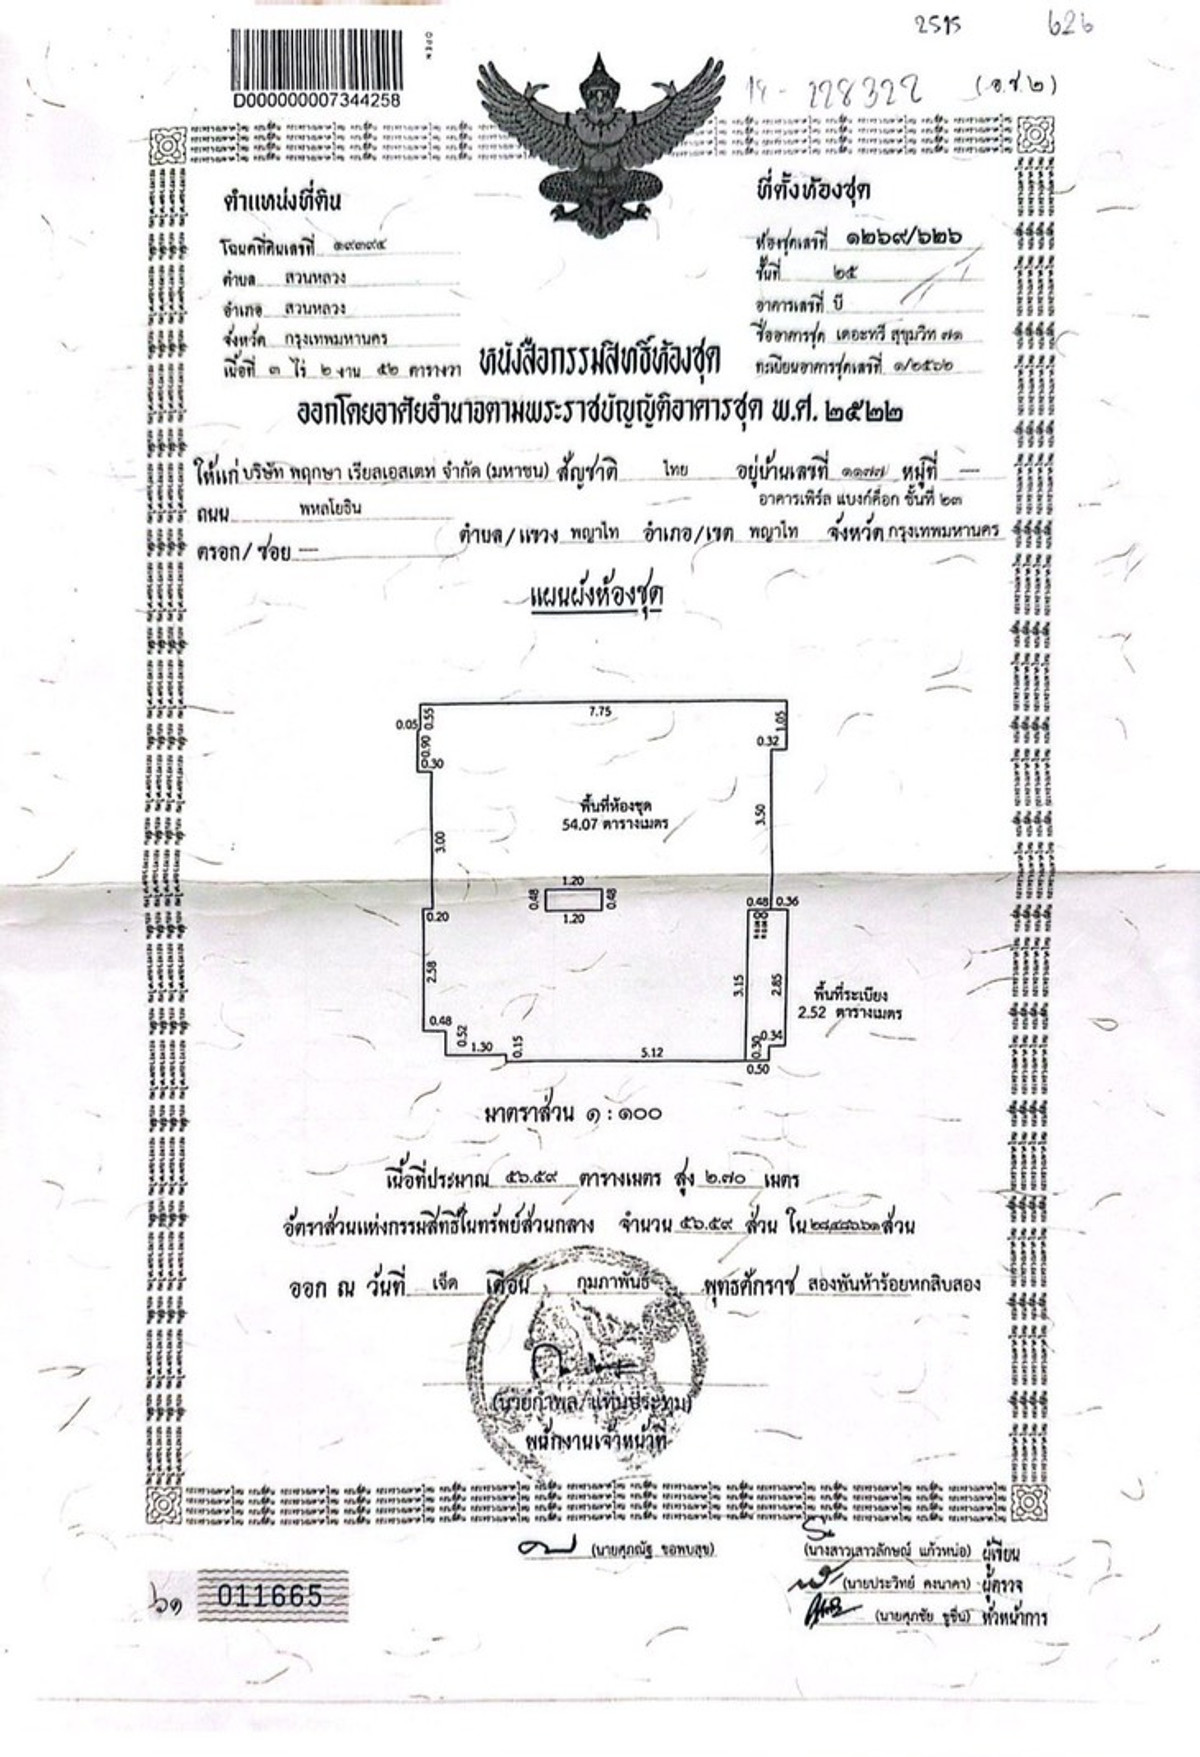 2515 626
D000000007344258
14-228322 (อ.ช.๒)
ตำแหน่งที่ดิน
โฉนดที่ดินเลขที่ ๑๙๓๙๕
ตำบล สวนหลวง
อำเภอ สวนหลวง
จังหวัด กรุงเทพมหานคร
เนื้อที่ ๓ ไร่ ๒ งาน ๕๒ ตารางวา
ที่ตั้งห้องชุด
ห้องชุดเลขที่ ๑๒๖๙/๖๒๖
ชั้นที่ ๒๕
อาคารเลขที่ บี
ชื่ออาคารชุด เดอะทรี สุขุมวิท ๗๑
ทะเบียนอาคารชุดเลขที่ ๑/๒๕๖๒
หนังสือกรรมสิทธิ์ห้องชุด
ออกโดยอาศัยอำนาจตามพระราชบัญญัติอาคารชุด พ.ศ. ๒๕๒๒
ให้แก่ บริษัท พฤกษา เรียลเอสเตท จำกัด (มหาชน) สัญชาติ ไทย อยู่บ้านเลขที่ ๑๑๗๗ หมู่ที่ —
อาคารเพิร์ล แบงก์ค็อก ชั้นที่ ๒๓
ถนน พหลโยธิน
ตรอก/ซอย — ตำบล/แขวง พญาไท อำเภอ/เขต พญาไท จังหวัด กรุงเทพมหานคร
แผนผังห้องชุด
7.75
0.05 0.55 1.05
0.90 0.32
0.30
พื้นที่ห้องชุด
54.07 ตารางเมตร
3.00 3.50
1.20
0.48 0.48
1.20
0.48 0.36
0.20
2.58 3.15 2.85
พื้นที่ระเบียง
2.52 ตารางเมตร
0.48 0.52 0.34
1.30 0.15 5.12 0.30
0.50
มาตราส่วน ๑ : ๑๐๐
เนื้อที่ประมาณ ๕๖.๕๙ ตารางเมตร สูง ๒.๗๐ เมตร
อัตราส่วนแห่งกรรมสิทธิ์ในทรัพย์ส่วนกลาง จำนวน ๕๖.๕๙ ส่วน ใน ๒๘,๔๘๖.๖๑ ส่วน
ออก ณ วันที่ เจ็ด เดือน กุมภาพันธ์ พุทธศักราช สองพันห้าร้อยหกสิบสอง
(นายกำพล แท่นประทุม)
พนักงานเจ้าหน้าที่
(นายศุภณัฐ ขอพบสุข)
(นางสาวเสาวลักษณ์ แก้วหน่อ) ผู้เขียน
(นายประวิทย์ คงนาคา) ผู้ตรวจ
(นายศุภชัย ชูชื่น) หัวหน้าการ
๖๑ 011665